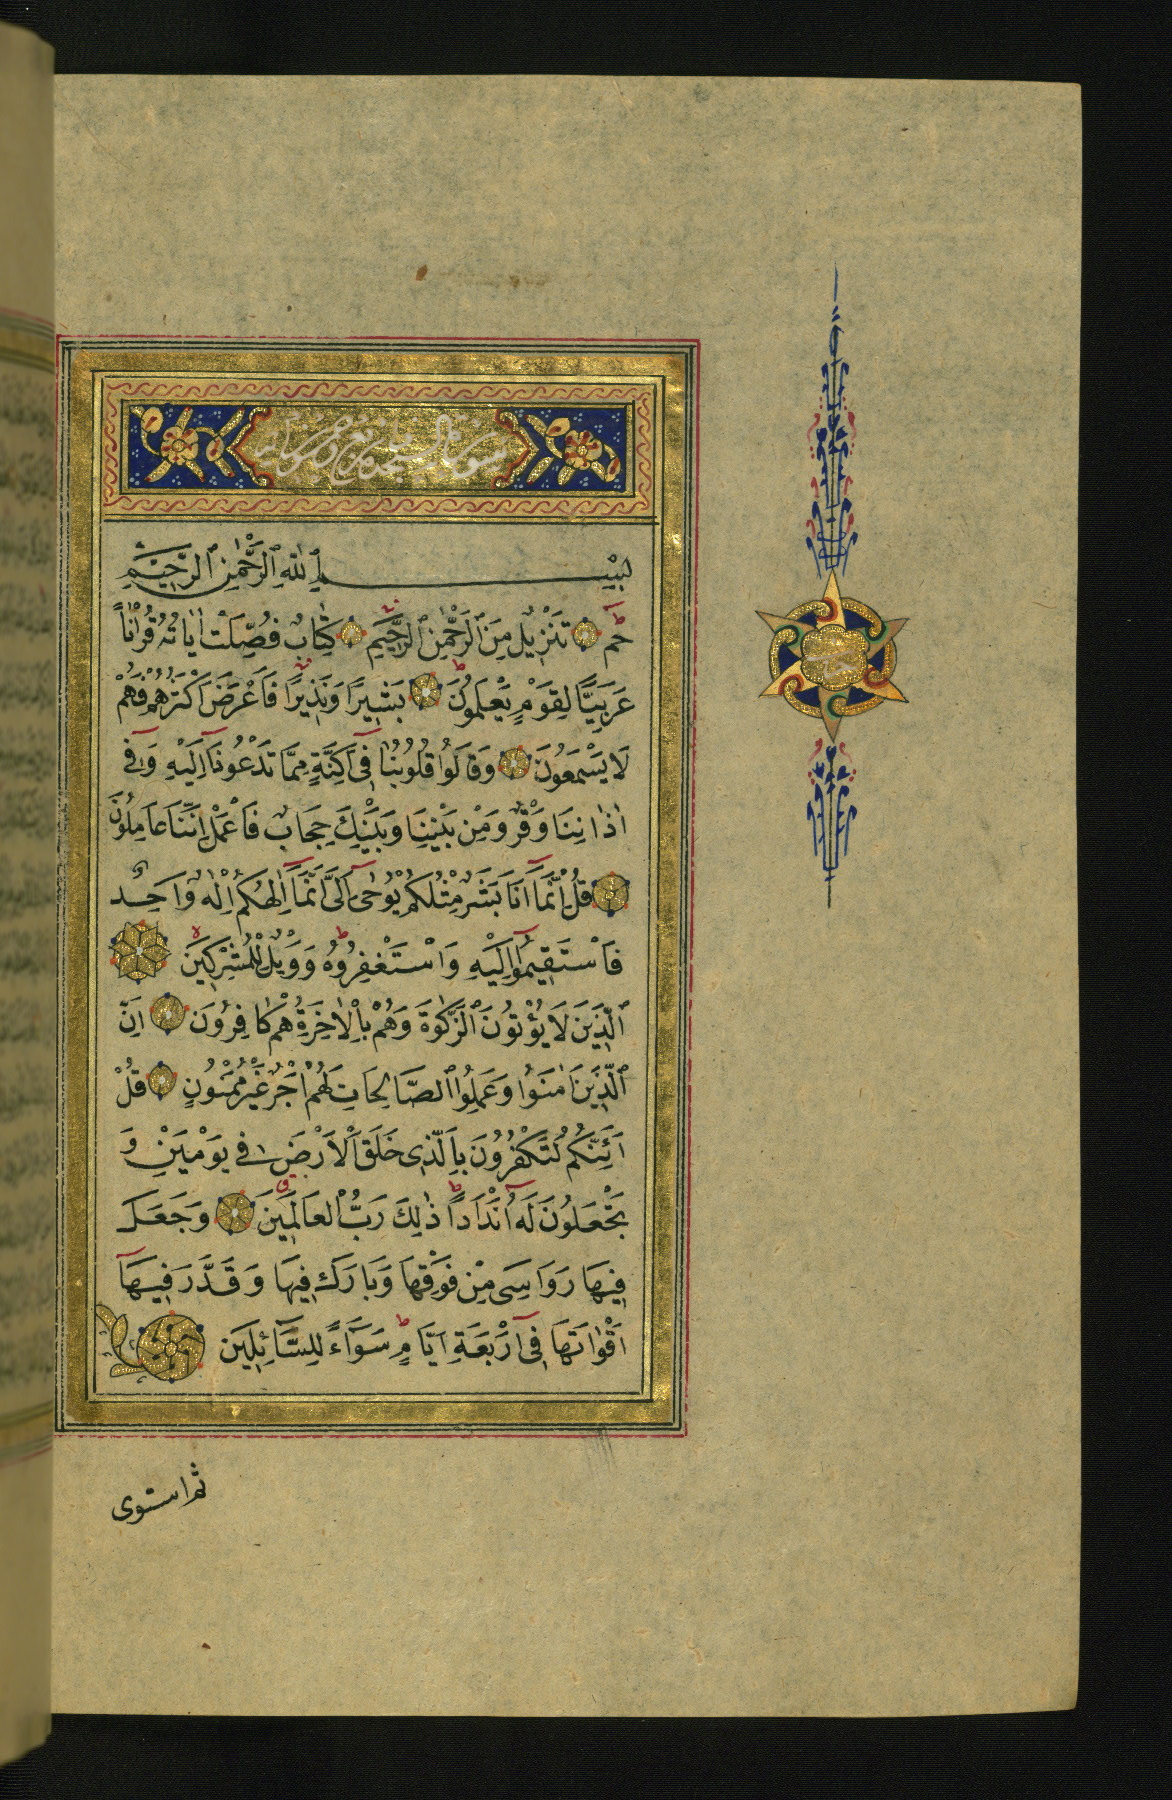 سورة السجدة
بِسْمِ ٱللّٰهِ ٱلرَّحْمٰنِ ٱلرَّحِيمِ
حٰمٓ تَنْزِيلٌ مِنَ ٱلرَّحْمٰنِ ٱلرَّحِيمِ كِتَابٌ فُصِّلَتْ اٰيَاتُهُ قُرْاٰنًا
عَرَبِيًّا لِقَوْمٍ يَعْلَمُونَ بَشِيرًا وَنَذِيرًا فَاَعْرَضَ اَكْثَرُهُمْ فَهُمْ
لَا يَسْمَعُونَ وَقَالُوا قُلُوبُنَا فِىٓ اَكِنَّةٍ مِمَّا تَدْعُونَآ اِلَيْهِ وَفِىٓ
اٰذَانِنَا وَقْرٌ وَمِنْ بَيْنِنَا وَبَيْنِكَ حِجَابٌ فَاعْمَلْ اِنَّنَا عَامِلُونَ
قُلْ اِنَّمَآ اَنَا بَشَرٌ مِثْلُكُمْ يُوحٰىٓ اِلَىَّ اَنَّمَآ اِلٰهُكُمْ اِلٰهٌ وَاحِدٌ
فَاسْتَقِيمُوٓا اِلَيْهِ وَاسْتَغْفِرُوهُ وَوَيْلٌ لِلْمُشْرِكِينَ
ٱلَّذِينَ لَا يُؤْتُونَ ٱلزَّكٰوةَ وَهُمْ بِالْاٰخِرَةِ هُمْ كَافِرُونَ اِنَّ
ٱلَّذِينَ اٰمَنُوا وَعَمِلُوا ٱلصَّالِحَاتِ لَهُمْ اَجْرٌ غَيْرُ مَمْنُونٍ قُلْ
اَئِنَّكُمْ لَتَكْفُرُونَ بِالَّذِى خَلَقَ ٱلْاَرْضَ فِى يَوْمَيْنِ وَ
تَجْعَلُونَ لَهُٓ اَنْدَادًا ذٰلِكَ رَبُّ ٱلْعَالَمِينَ وَجَعَلَ
فِيهَا رَوَاسِىَ مِنْ فَوْقِهَا وَبَارَكَ فِيهَا وَقَدَّرَ فِيهَآ
اَقْوَاتَهَا فِىٓ اَرْبَعَةِ اَيَّامٍ سَوَآءً لِلسَّآئِلِينَ
ثم استوى